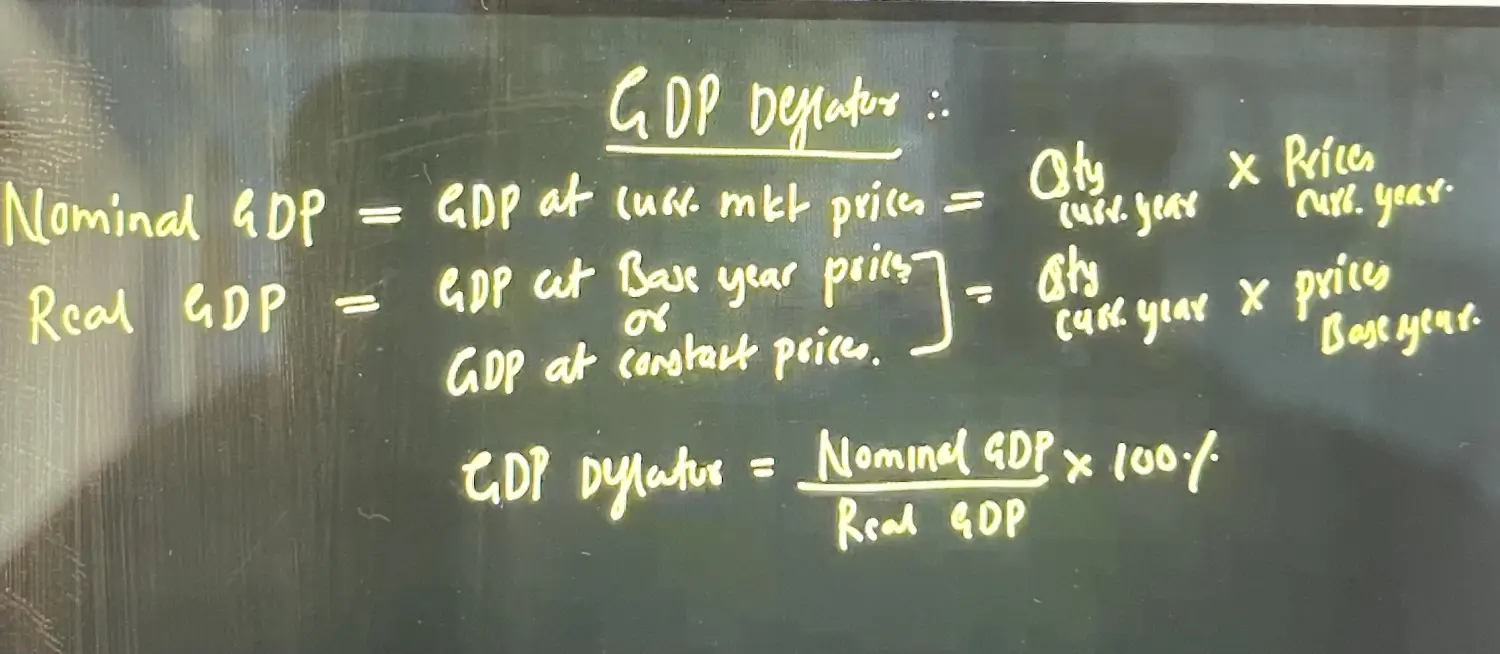 GDP Deflator :.
Nominal GDP = GDP at curr. mkt prices = Qty curr. year × Prices curr. year.
Real GDP = GDP at Base year prices
or
GDP at constant prices. ] = Qty curr. year × prices Base year.
GDP Deflator = Nominal GDP × 100%
Real GDP